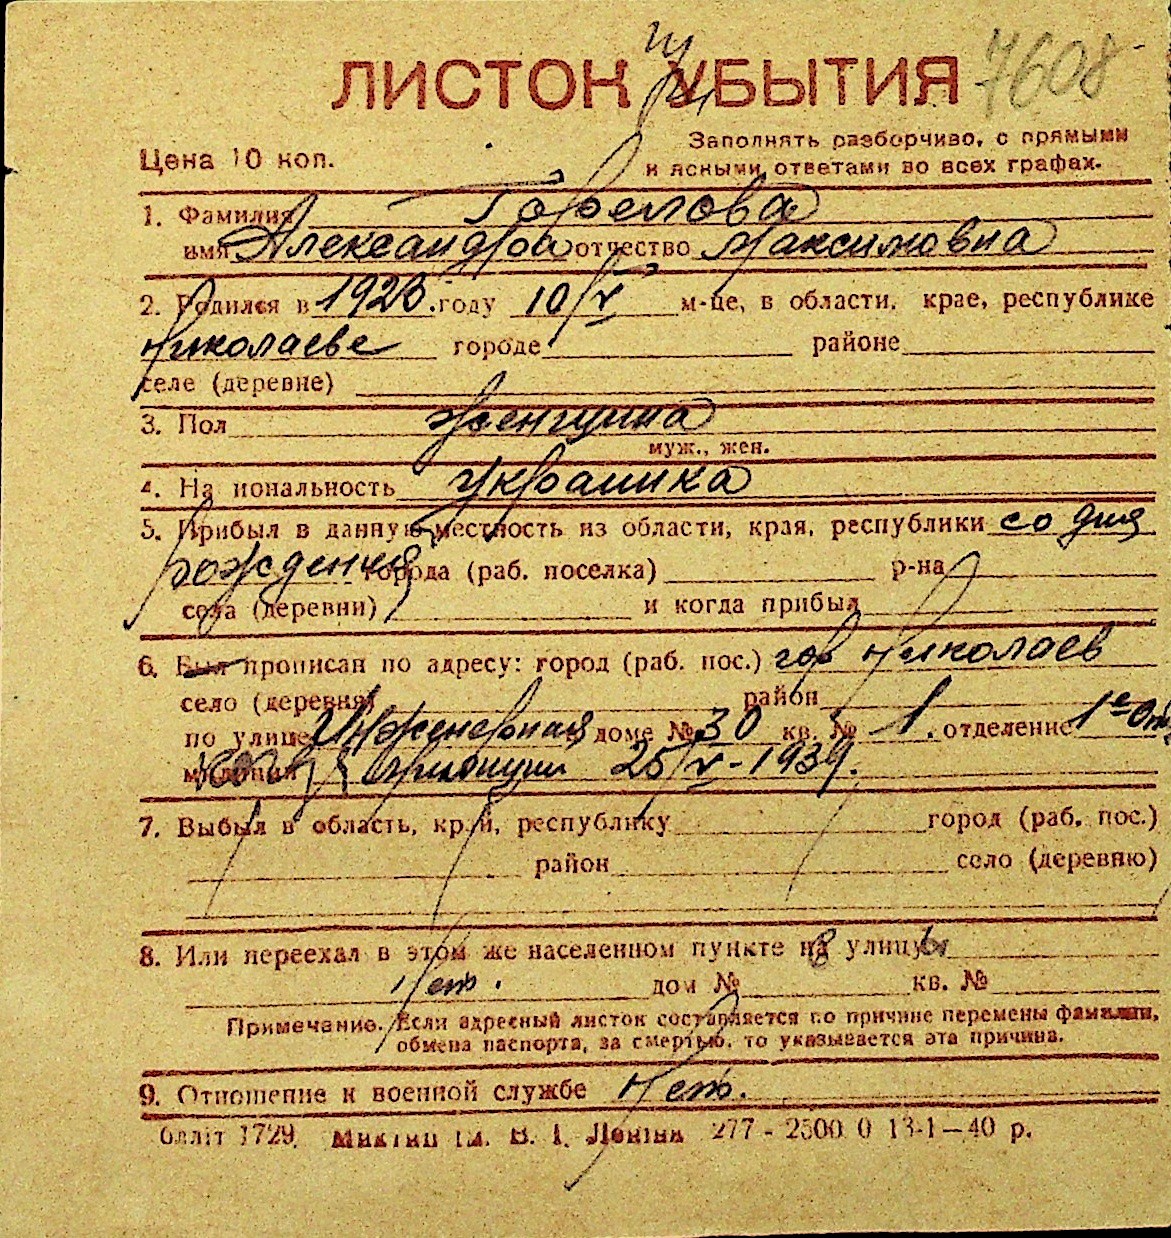 ЛИСТОК УБЫТИЯ 7608
Цена 10 коп.
Заполнять разборчиво, с прямыми
и ясными ответами во всех графах.
1. Фамилия Горелова
имя Александра отчество Максимовна
2. Родился в 1923. году 10/V м-це, в области, крае, республике
Николаеве городе районе
селе (деревне)
3. Пол женщина
муж., жен.
4. На иональность Украинка
5. Прибыл в данную местность из области, края, республики со дня
рождения города (раб. поселка) р-на
села (деревни) и когда прибыл
6. Был прописан по адресу: город (раб. пос.) гор Николаев
село (деревня) район
по улице Инженерная доме № 30 кв. № 1. отделение 1е Отд
милиции 25/V-1939.
7. Выбыл в область, край, республику город (раб. пос.)
район село (деревню)
8. Или переехал в этом же населенном пункте на улицу
Нет. дом № кв. №
Примечание. Если адресный листок составляется по причине перемены фамилии,
обмена паспорта, за смертью, то указывается эта причина.
9. Отношение к военной службе Нет.
блліт 1729. ім. В. І. Леніна 277 - 2500 0 13-1—40 р.